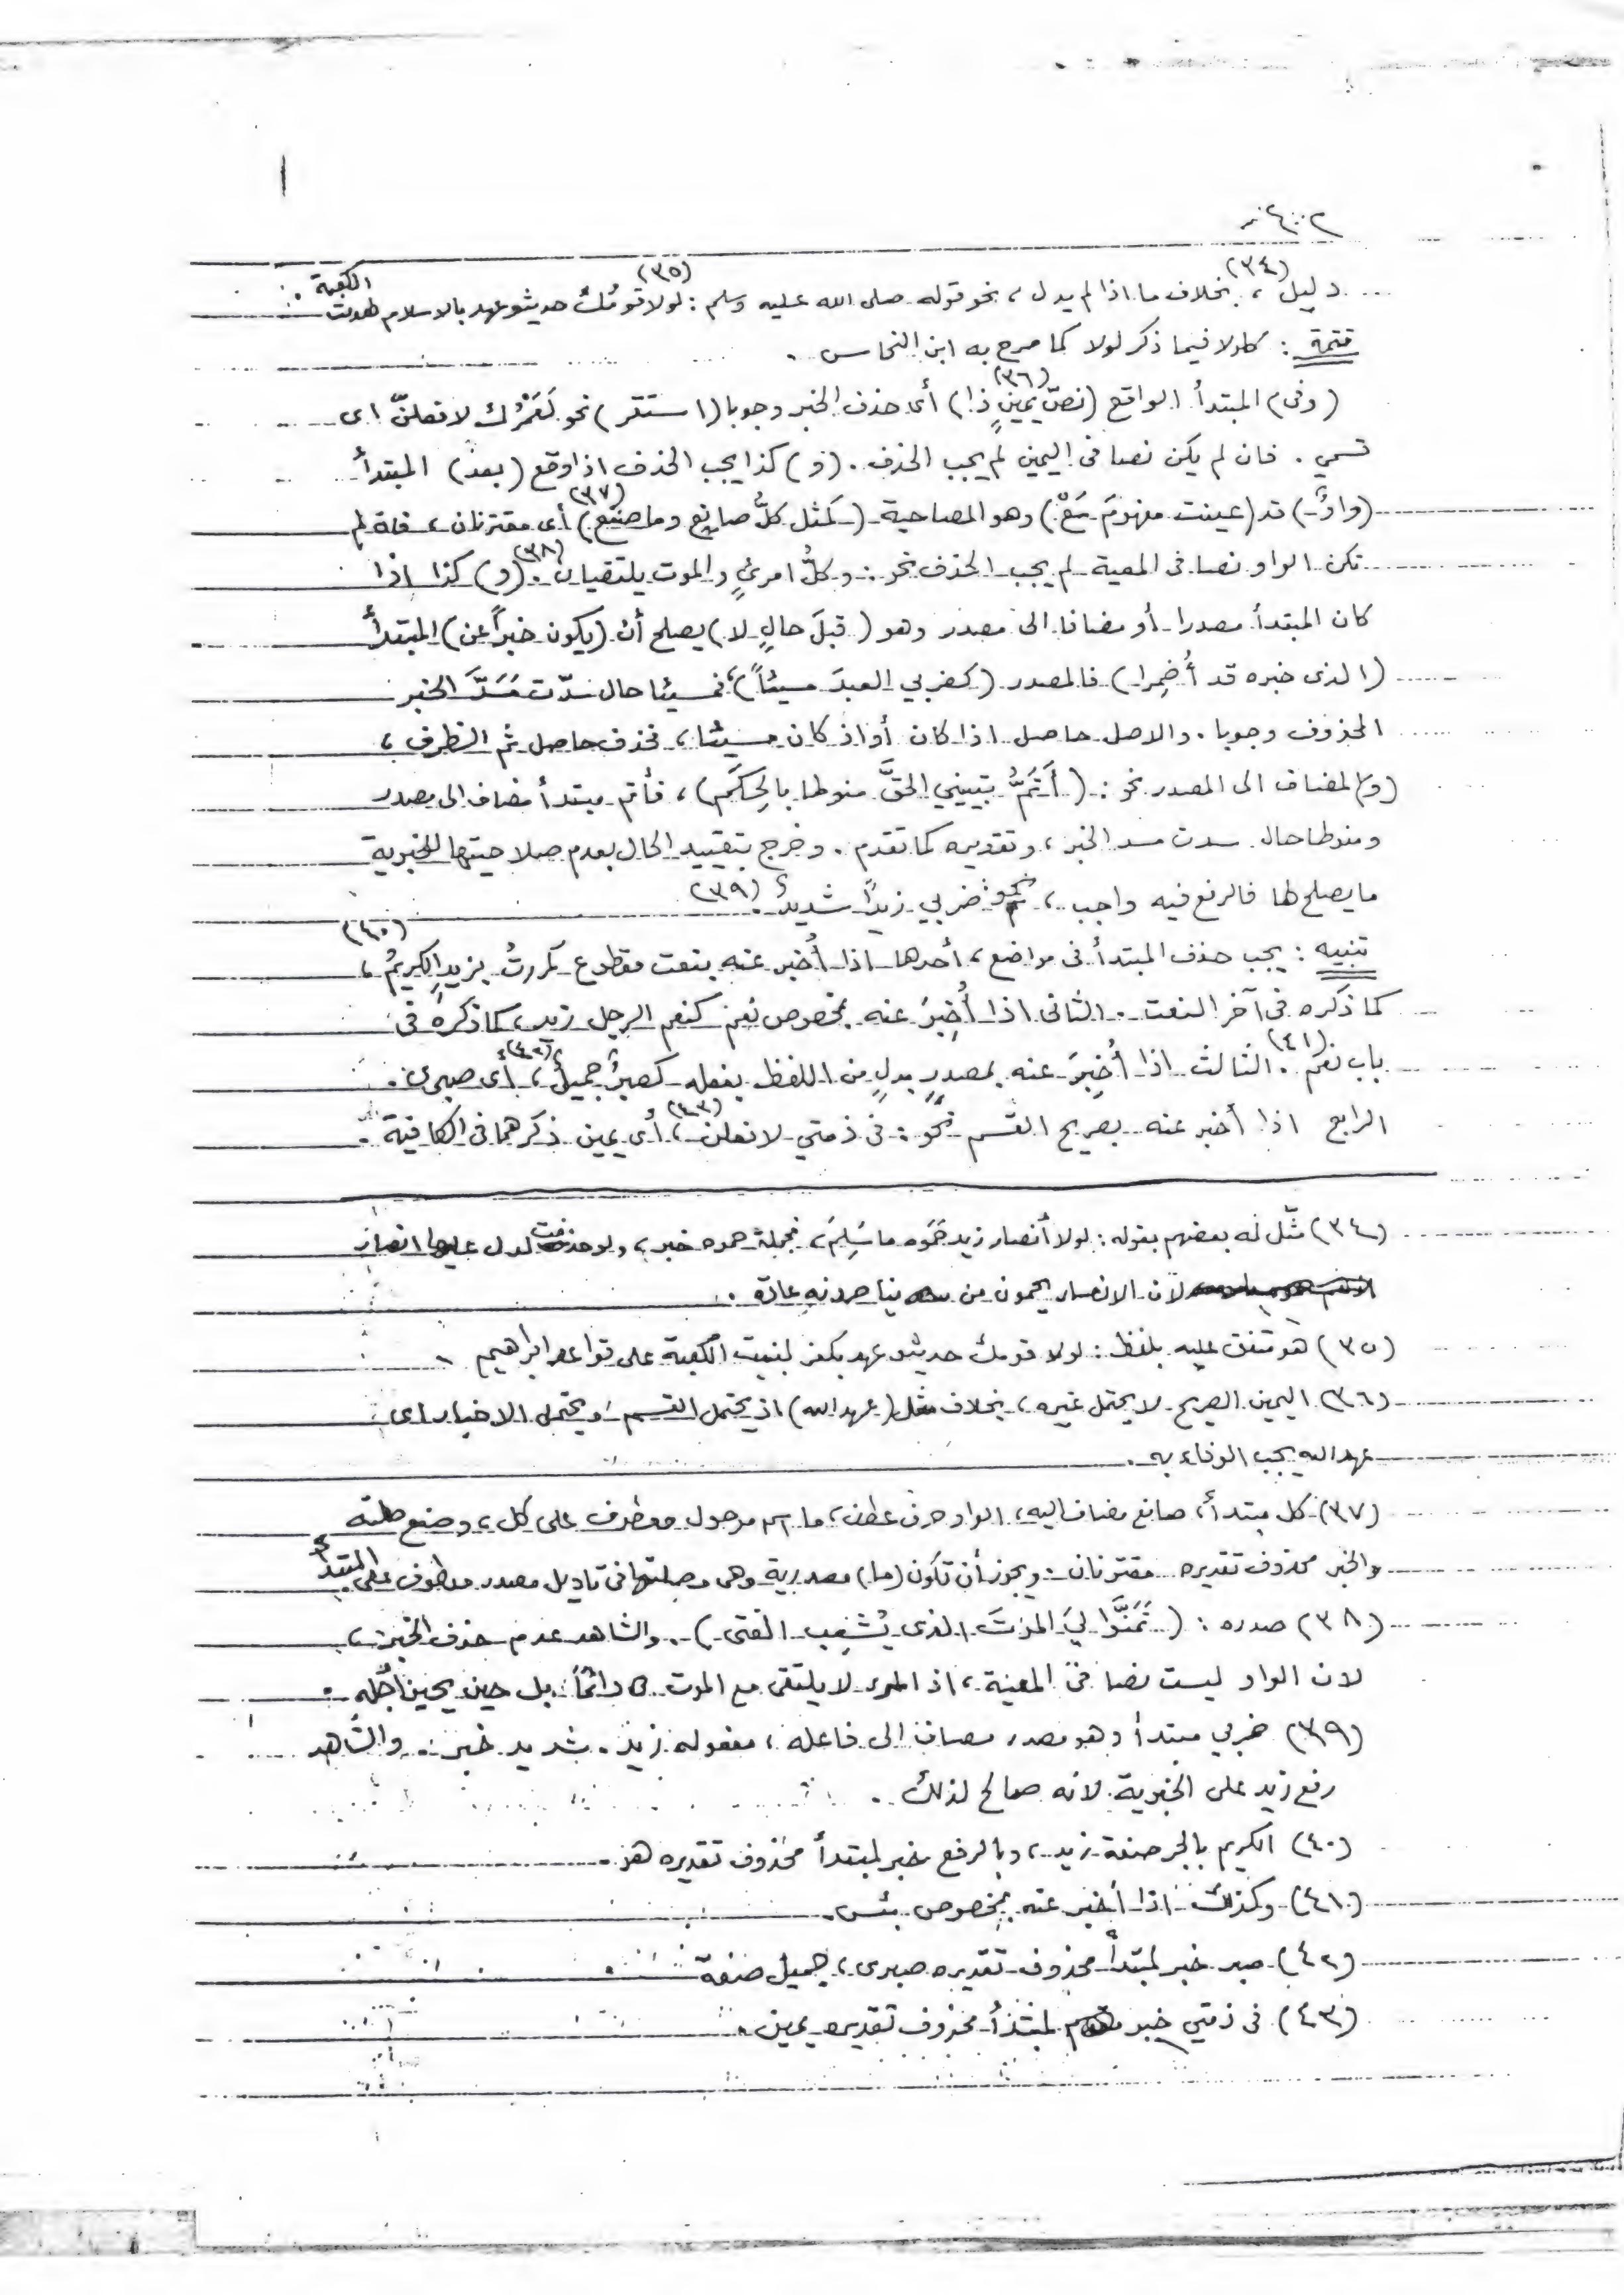 دليل (٣٤)، بخلاف ما اذا لم يدل، نحو قوله صلى الله عليه وسلم: لولا قومك (٣٥) حديثو عهد بالاسلام لهدمت الكعبة.
تتمة: كلولا فيما ذكر لوما كما صرح به ابن النحاس.
(وفى) المبتدأ الواقع (نصّ يمينٍ (٣٦) ذا) أى حذف الخبر وجوبا (استقر) نحو لَعَمْرُك لافعلنّ اى
قسمي. فان لم يكن نصا فى اليمين لم يجب الحذف. (و) كذا يجب الحذف اذا وقع (بعد) المبتدأ
(واوٌ) قد (عينت مفهومَ مَعْ) وهو المصاحبة (كمثل كلُّ صانعٍ وما صنع (٣٧)) أى مقترنان، فان لم
تكن الواو نصا فى المعية لم يجب الحذف نحو: وكلُّ امرئٍ والموت يلتقيان (٣٨). (و) كذا اذا
كان المبتدأ مصدرا أو مضافا الى مصدر وهو (قبلَ حالٍ لا) يصلح أن (يكون خبراً عن) المبتدأ
(الذى خبره قد أُضمِرا) فالمصدر (كضربي العبدَ مسيئاً)، فمسيئا حال سدّت مَسَدَّ الخبر
المحذوف وجوبا. والاصل حاصل اذا كان أو اذ كان مسيئا، فحذف حاصل ثم الظرف،
(و) المضاف الى المصدر نحو: (أَتَمُّ تبييني الحقَّ منوطا بالحِكَم)، فأتم مبتدأ مضاف الى مصدر
ومنوطا حال سدت مسد الخبر، وتقديره كما تقدم. وخرج بتقييد الحال بعدم صلاحيتها للخبرية
ما يصلح لها فالرفع فيه واجب، نحو ضربي زيداً شديدٌ. (٣٩)
تنبيه: يجب حذف المبتدأ فى مواضع، أحدها اذا أُخبر عنه بنعت مقطوع كمررتُ بزيدٍ الكريمُ (٤٠)،
كما ذكره فى آخر النعت. الثانى اذا أُخبِرَ عنه بمخصوص نِعْمَ كنعم الرجل زيد، كما ذكره فى
باب نعم (٤١). الثالث اذا أُخبِرَ عنه بمصدرٍ بدلٍ من اللفظ بفعله كصبرٌ جميلٌ (٤٢)، أى صبرى.
الرابع اذا أخبر عنه بصريح القسم نحو: فى ذمتي لافعلن (٤٣)، أى يمين ذكرهما فى الكافية.
(٣٤) مثّل له بعضهم بقوله: لولا أنصار زيد حَمَوه ما سَلِمَ، فجملة حموه خبر، ولو حذفت لدل عليها انصار
لان الانصار يحمون من يناصرونه عادة.
(٣٥) هو متفق عليه بلفظ: لولا قومك حديثو عهد بكفر لبنيت الكعبة على قواعد ابراهيم
(٣٦) اليمين الصريح لا يحتمل غيره، بخلاف مثل (عهد الله) اذ يحتمل القسم ويحتمل الاخبار اى
عهد الله يجب الوفاء به.
(٣٧) كل مبتدأ، صانع مضاف اليه، الواو حرف عطف، ما اسم موصول معطوف على كل، وصنع صلته
والخبر محذوف تقديره مقترنان. ويجوز أن تكون (ما) مصدرية وهى وصلتها فى تاويل مصدر معطوف على المبتدأ
(٣٨) صدره: (تَمَنَّوْا لِيَ الموتَ الذى يُشْعِب الفتى). والشاهد عدم حذف الخبر،
لان الواو ليست نصا فى المعية، اذ المرء لا يلتقى مع الموت دائماً بل حين يحين أجله.
(٣٩) ضربي مبتدأ وهو مصدر مضاف الى فاعله، مفعوله زيد. شديد خبر. والشاهد
رفع زيد على الخبرية لانه صالح لذلك.
(٤٠) الكريم بالجر صفة زيد، وبالرفع خبر لمبتدأ محذوف تقديره هو.
(٤١) وكذلك اذا أخبر عنه بمخصوص بئس.
(٤٢) صبر خبر لمبتدأ محذوف تقديره صبرى، جميل صفة
(٤٣) فى ذمتي خبر مقدم لمبتدأ محذوف تقديره يمين.